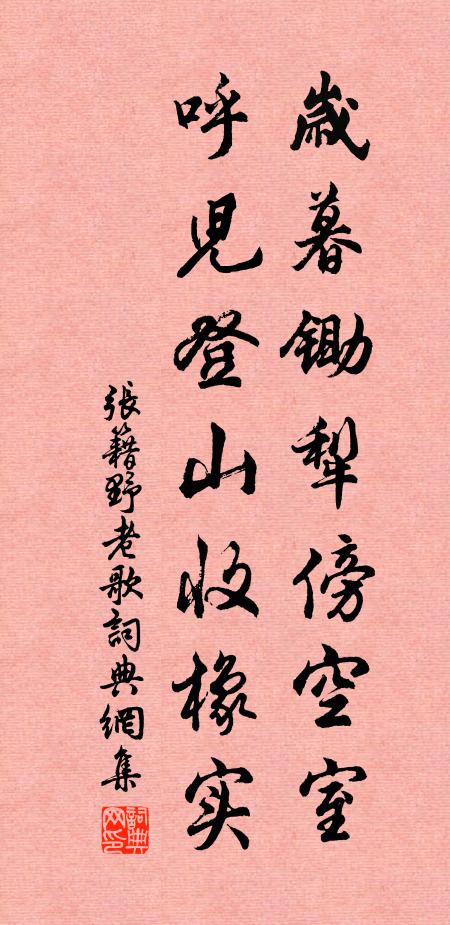 歲暮鋤犁傍空室
呼兒登山收橡实
張籍野老歌詞典網集
詞典网印